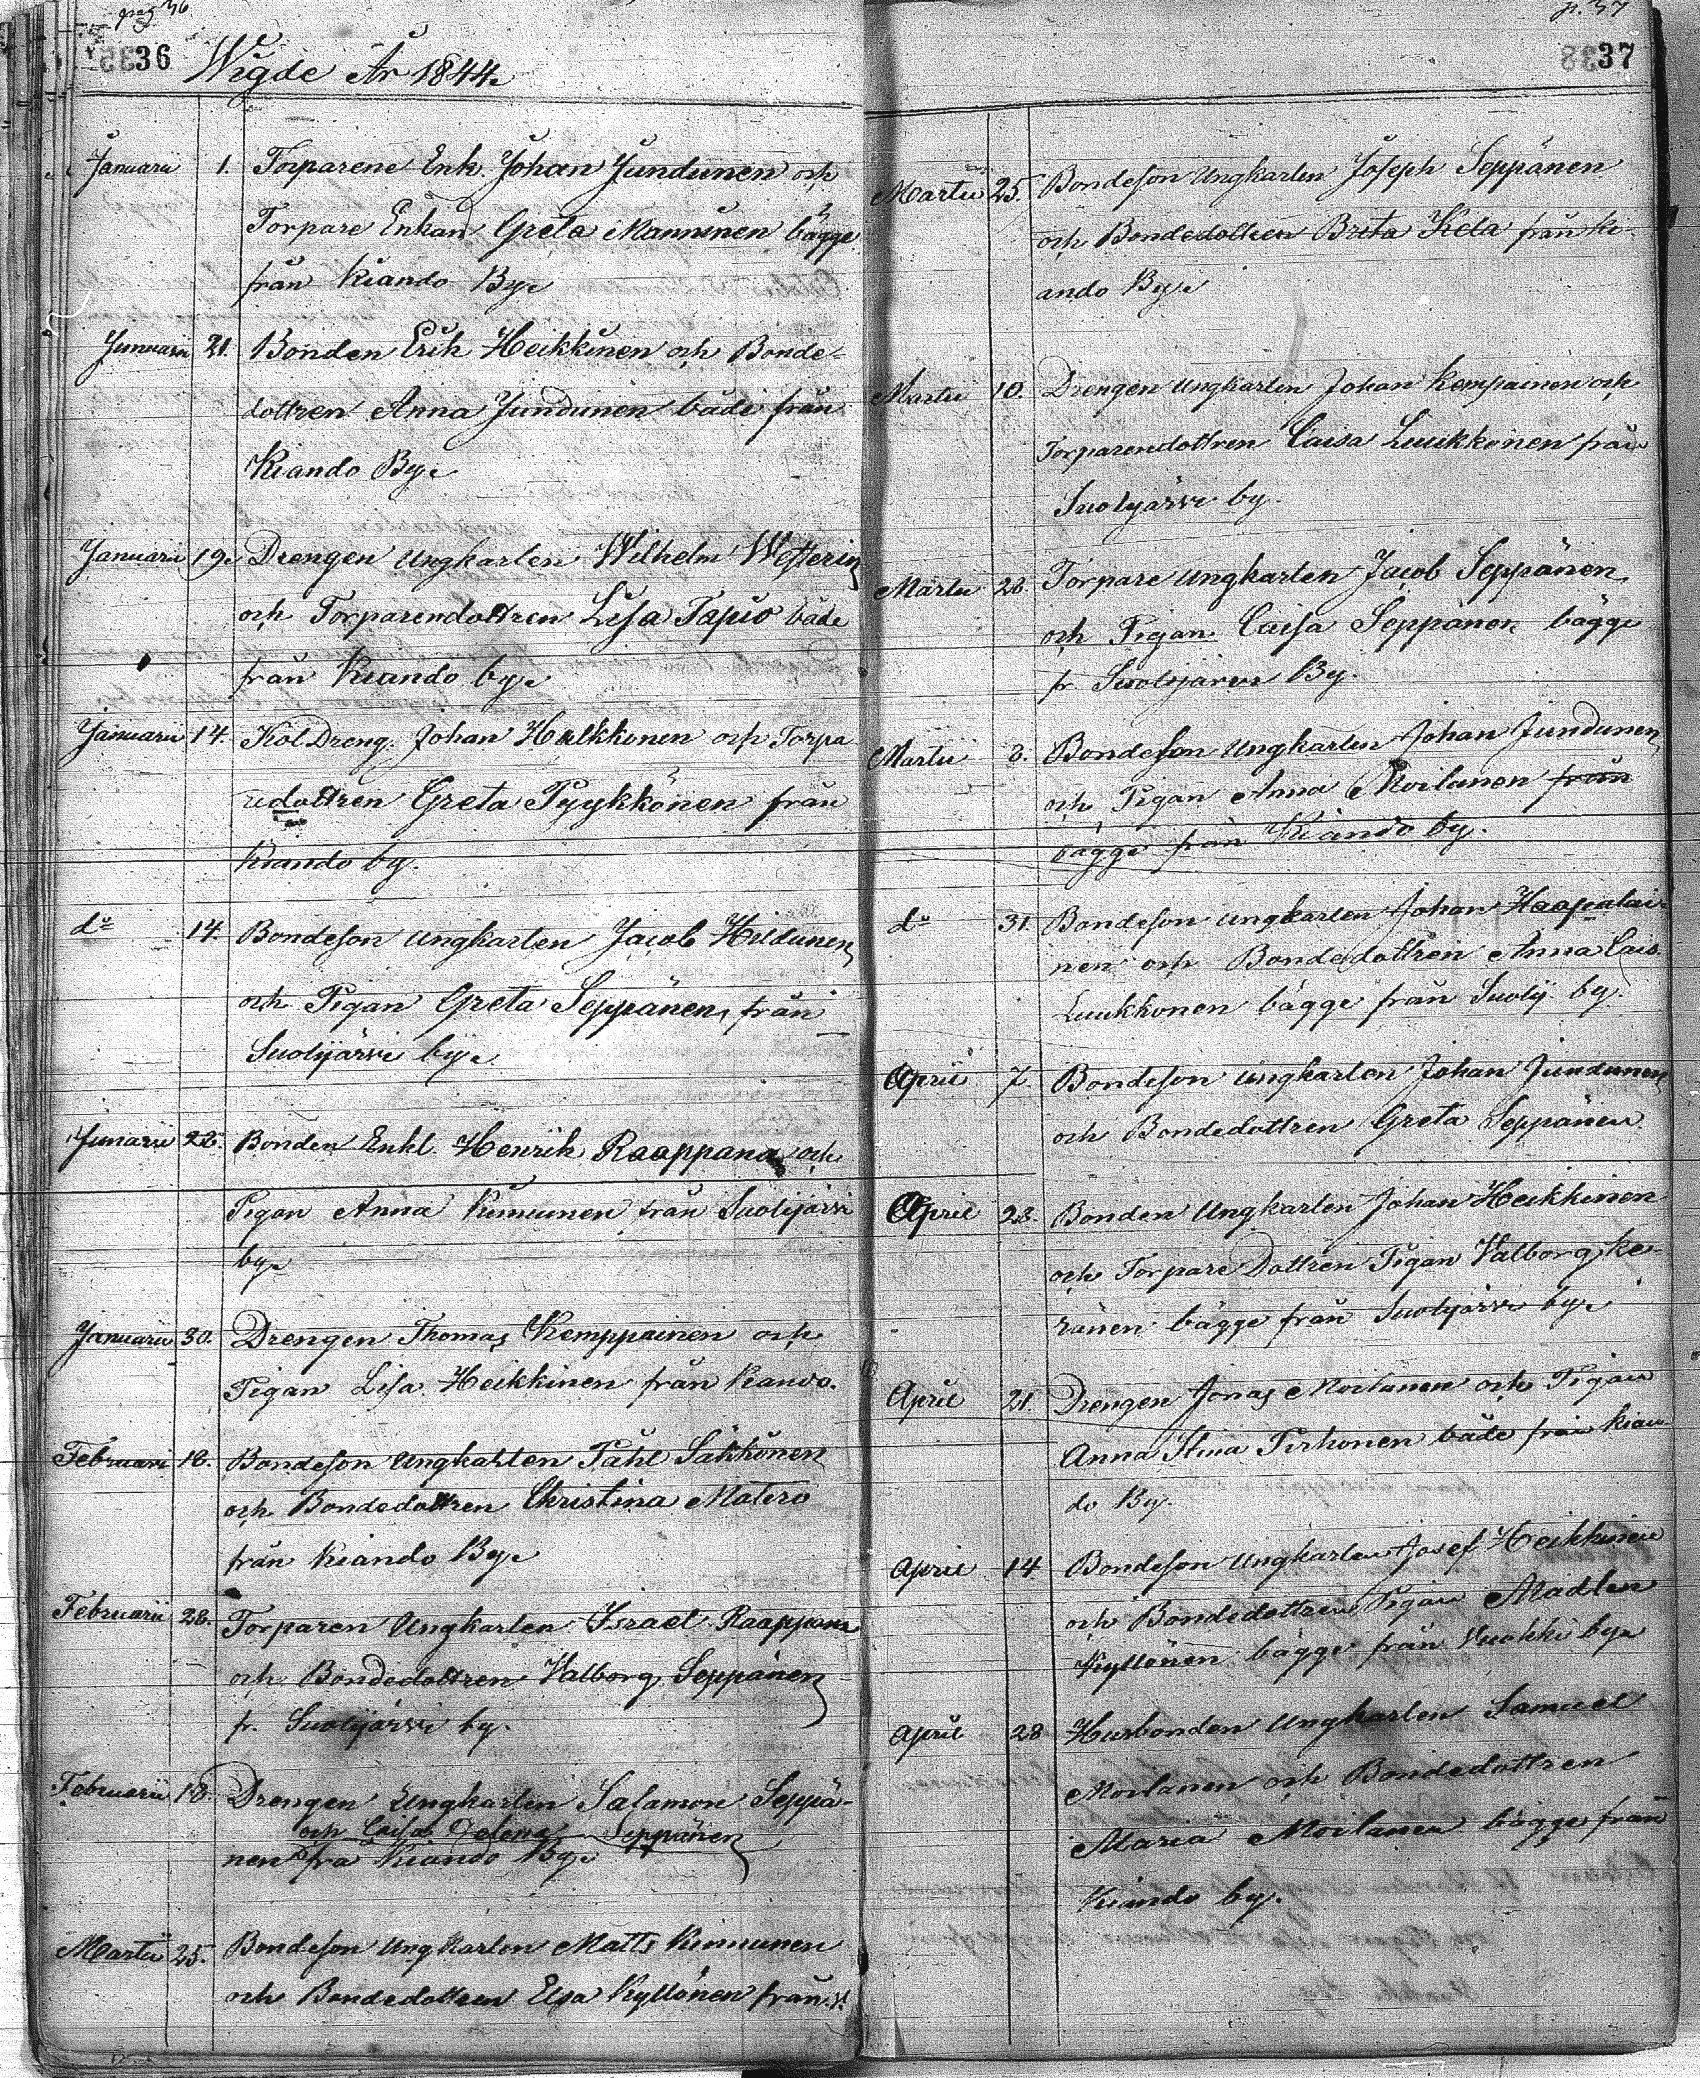 pag 36
36
Wigde År 1844.
Januarii 1. Torparene Enk. Johan Jundunen och
Torpare Enkan Greta Manninen bägge
från Kiando By.
Januarii 21. Bonden Erik Heikkinen och Bonde-
dottren Anna Jundunen både från
Kiando By.
Januarii 19. Drengen Ungkarlen Wilhelm Westerin
och Torparendottren Lisa Tapio både
från Kiando by.
Januarii 14. Dreng. Johan Hulkkonen och Torpa
redottren Greta Pyykkönen från
Kiando by.
do 14. Bondeson ungkarlen Jacob Hildunen
och Pigan Greta Seppänen, från
Suolijärvi by.
Januarii 22. Bonden Enkl. Henrik Raappana och
Pigan Anna Kinnunen från Suolijärvi
by.
Januarii 30. Drengen Thomas Kemppainen och
Pigan Lisa Heikkinen från Kiando.
Februarii 18. Bondeson Ungkarlen Påhl Säkkönen
och Bondedottren Christina Matero
från Kiando By.
Februarii 28. Torparen Ungkarlen Israel Raappana
och Bondedottren Valborg Seppänen
fr. Suolijärvi by.
Februarii 18. Drengen Ungkarlen Salamon Seppä-
och Caisa Helena Seppänen
nen fra Kiando By.
Martii 25. Bondeson Ungkarlen Matts Kinnunen
och Bondedottren Elsa Kyllönen från
p. 37
37
Martii 25. Bondeson Ungkarlen Joseph Seppänen
och Bondedottren Brita Kela från Ki-
ando By.
Martii 10. Drengen Ungkarlen Johan Kempainen och
Torparendottren Caisa Luukkonen från
Suolijärvi by.
Martii 28. Torpare Ungkarlen Jacob Seppänen
och Pigan Caisa Seppänen bägge
fr Suolijärvi By.
Martii 3. Bondeson Ungkarlen Johan Jundunen
och Pigan Anna Moilanen från
bägge från Kiando by.
do 31. Bondeson ungkarlen Johan Haapalai-
nen och Bondedottren Anna Cais.
Luukkonen bägge från Suolij by.
April 7 Bondeson ungkarlen Johan Jundunen
och Bondedottren Greta Seppänen
April 28. Bonden Ungkarlen Johan Heikkinen
och Torpare Dottren Pigan Valborg Ke-
ränen bägge från Suolijärvi by.
April 21. Drengen Jonas Moilanen och Pigan
Anna Stina Tirkonen både från Kian-
do By.
April 14 Bondeson Ungkarlen Josef Heikkinen
och Bondedottren Pigan Madlen
Kyllönen bägge från Vuokki by.
April 28 Husbonden Ungkarlen Samuel
Moilanen och Bondedottren
Maria Moilanen bägge från
Kiando by.